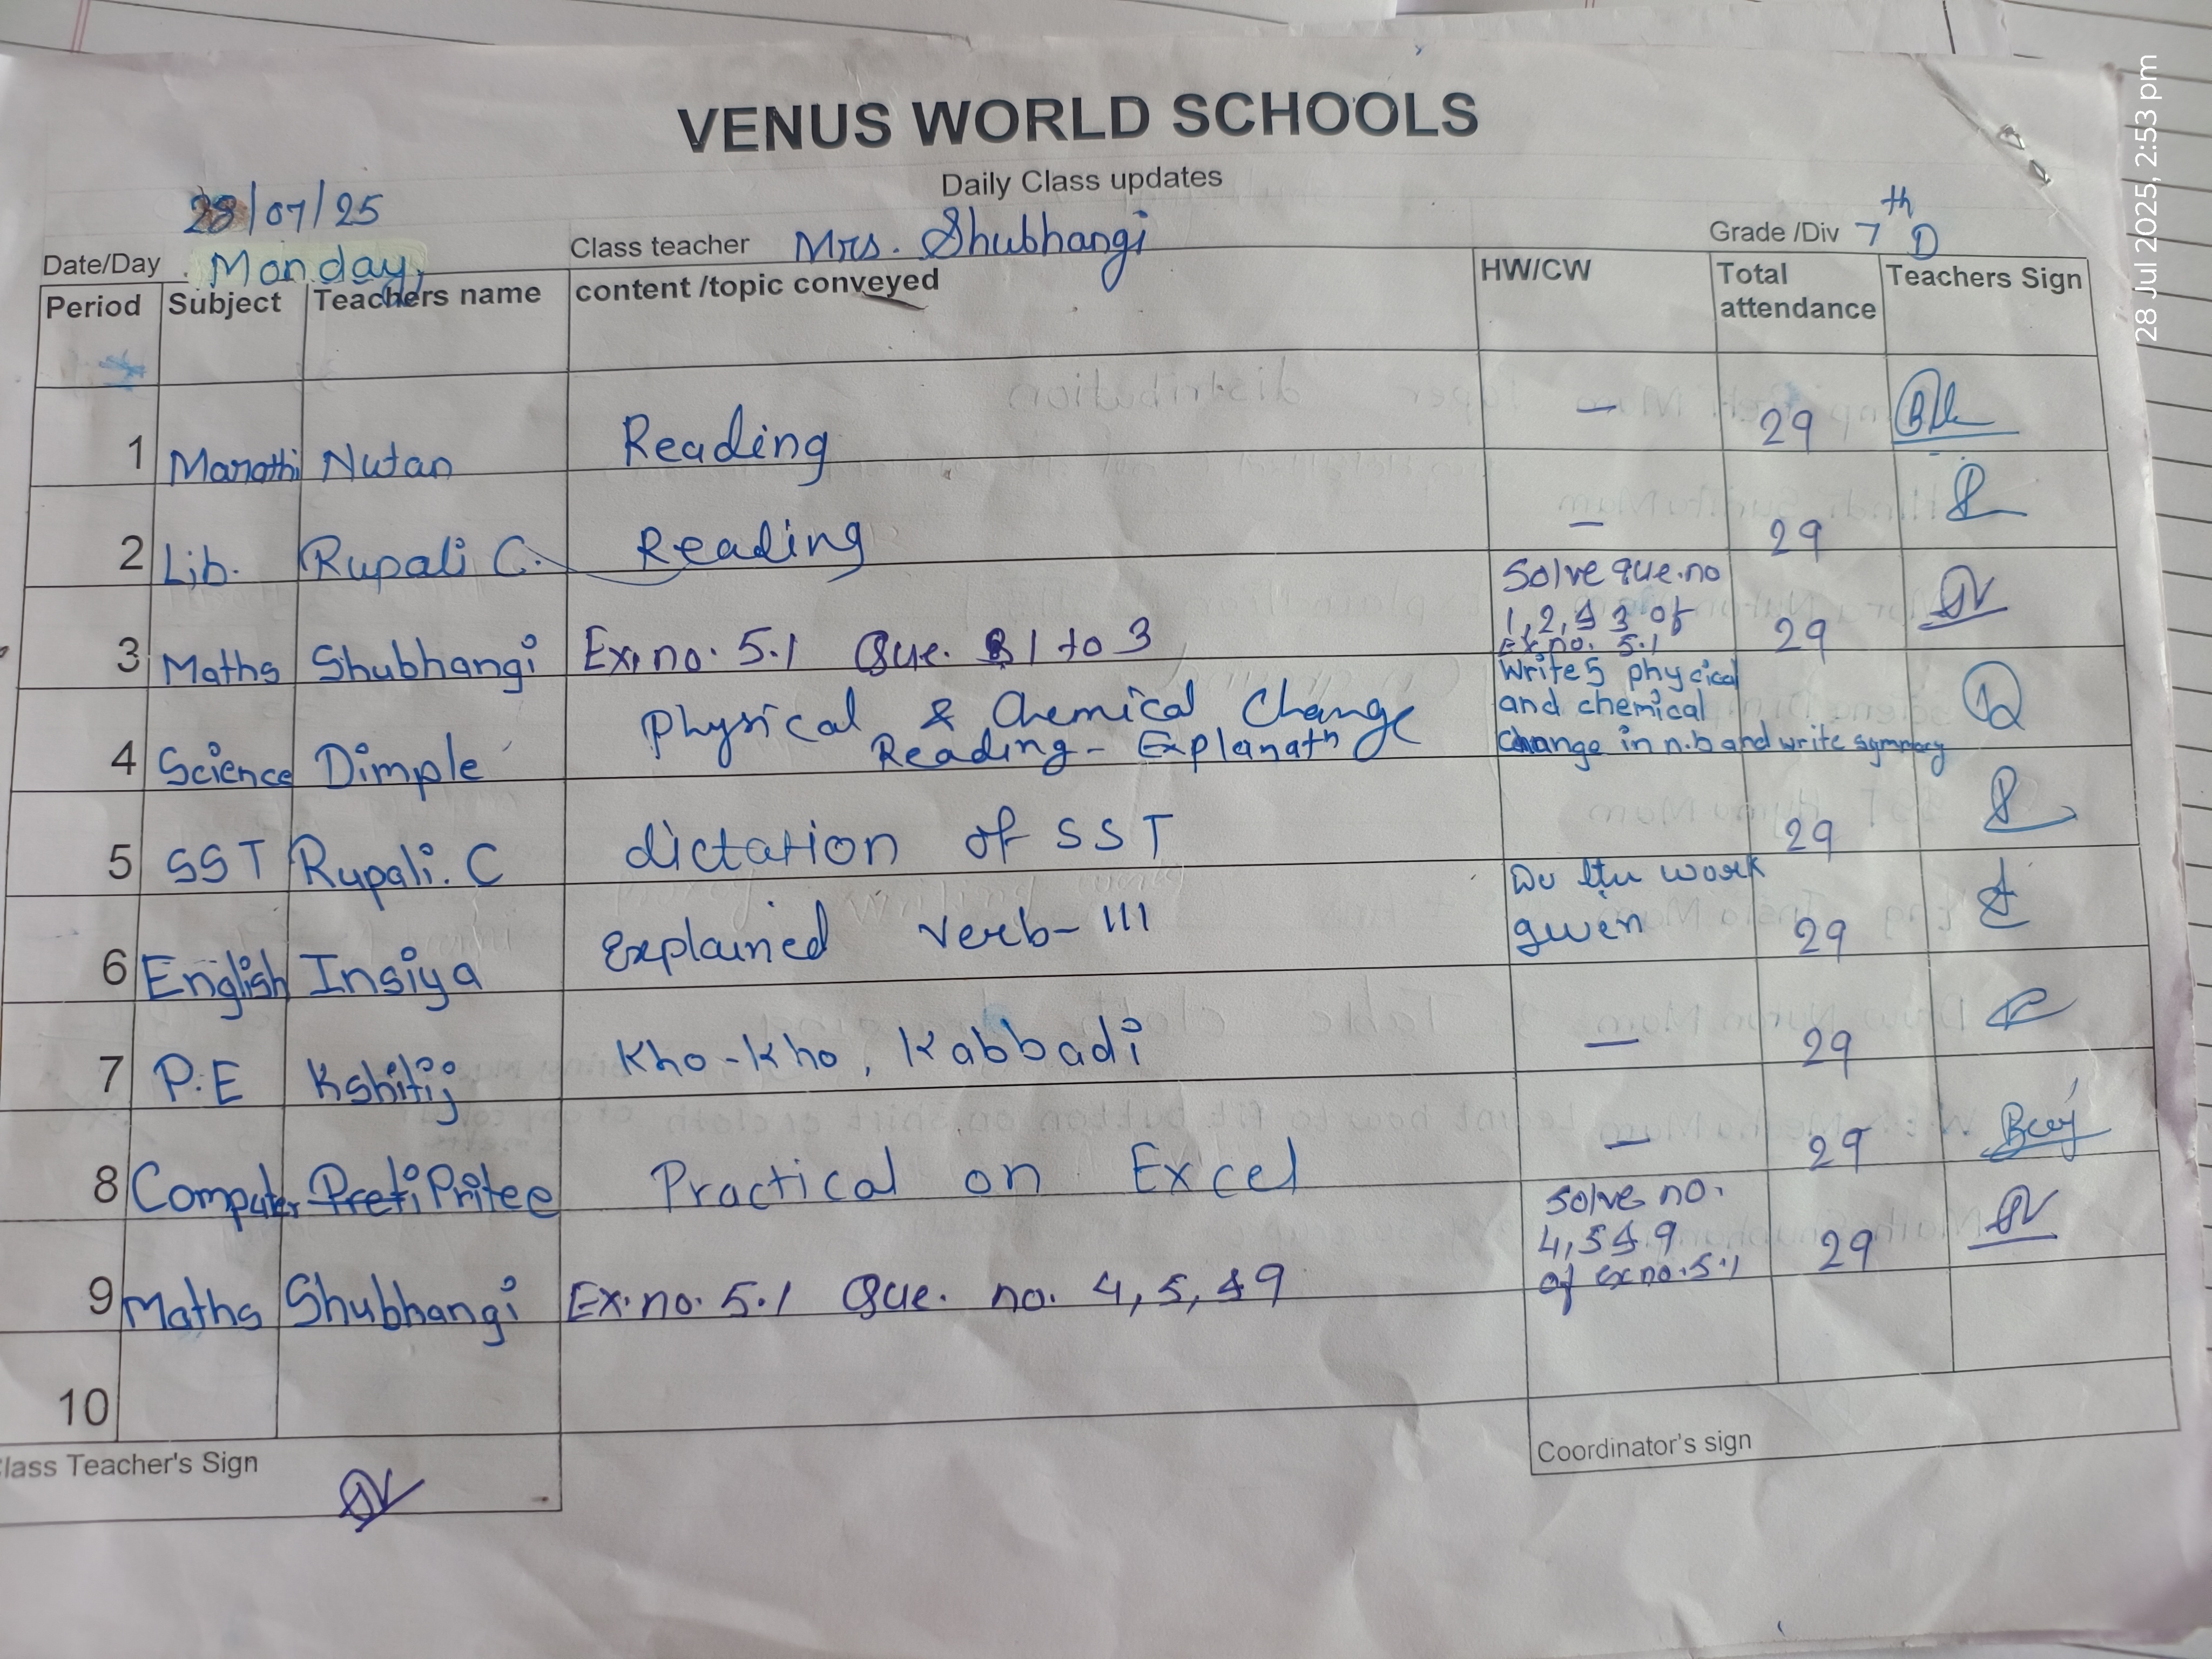 VENUS WORLD SCHOOLS
Daily Class updates
28/07/25
Date/Day Monday
Class teacher Mrs. Shubhangi
Grade /Div 7th D
Period Subject Teachers name content /topic conveyed HW/CW Total attendance Teachers Sign
1 Marathi Nutan Reading — 29
2 Lib. Rupali C. Reading — 29
3 Maths Shubhangi Ex.no. 5.1 Que. 1 to 3 29
Solve que.no
1,2,& 3 of
Ex.no. 5.1
4 Science Dimple Physical & Chemical Change
Reading - Explanatn
Write 5 phycical
and chemical
change in n.b and write symmary
5 SST Rupali. C dictation of SST 29
6 English Insiya Explained Verb- III 29
Do the work
given
7 P.E Kshitij Kho-kho, Kabbadi — 29
8 Computer Preti Pritee Practical on Excel — 29
9 Maths Shubhangi Ex.no. 5.1 Que. no. 4, 5, & 9 29
Solve no.
4,5 & 9
of ex no.5.1
10
lass Teacher's Sign
Coordinator's sign
28 Jul 2025, 2:53 pm